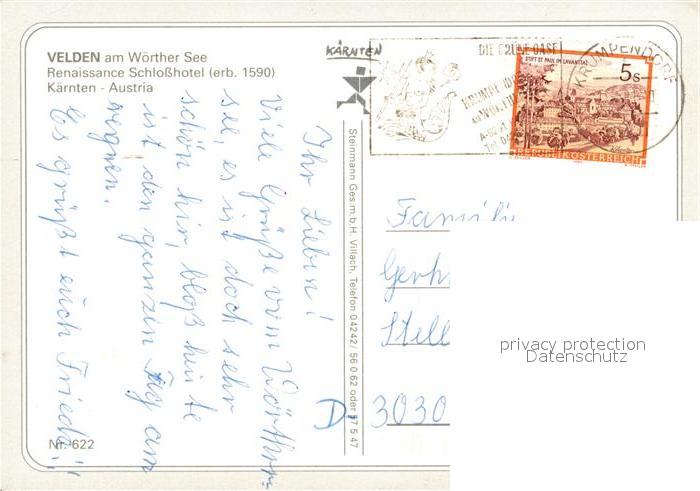 VELDEN am Wörther See
Renaissance Schloßhotel (erb. 1590)
Kärnten - Austria
KÄRNTEN
DIE GRÜNE OASE
KRUMPENDORF
STIFT ST. PAUL IM LAVANTTAL
5s
REPUBLIK ÖSTERREICH
KRUMPENDORF
Ihr Lieben!
Viele Grüße vom Wörther-
see, es ist doch sehr
schön hier, bloß heute
ist den ganzen Tag am
regnen.
Es grüßt euch Frieda!!
Steinmann Ges.m.b.H. Villach, Telefon 04242/ 56 0 62 oder 37 5 47
Familie
Gerh
Stell
D-
3030
privacy protection
Datenschutz
Nr. 622